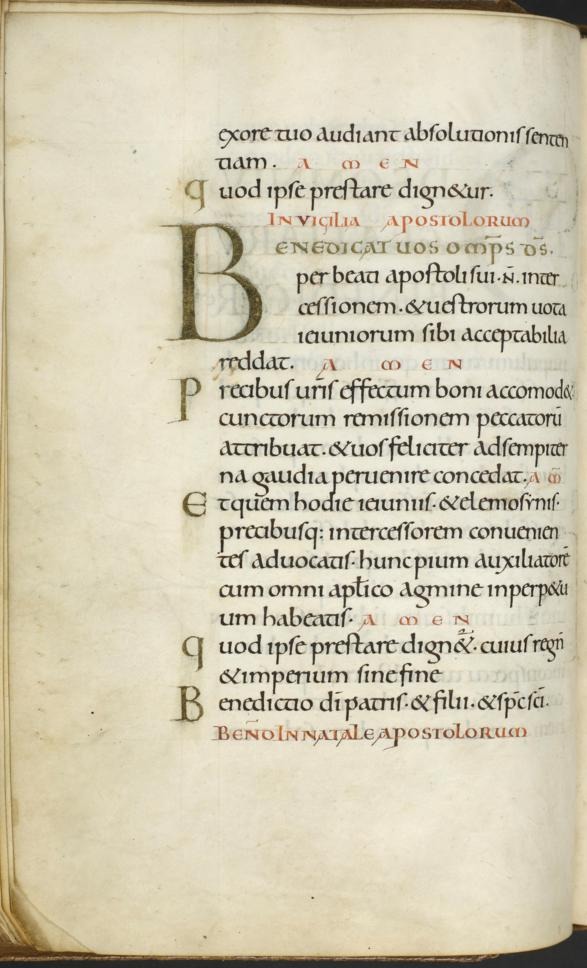 exore tuo audiant absolutionis senten
tiam. AMEN
quod ipse prestare dign&ur.
IN VIGILIA APOSTOLORUM
BENEDICAT UOS OMP̅S D̅S.
per beati apostoli sui·N̅· inter
cessionem·&uestrorum uota
ieiuniorum sibi acceptabilia
reddat. AMEN
Precibus ur̅is effectum boni accomod&
cunctorum remissionem peccatorū
attribuat·&uos feliciter ad sempiter
na gaudia peruenire concedat. AM̅
Et quem hodie ieiuniis·&elemosynis·
precibusq: intercessorem conuenien
tes aduocatis· hunc pium auxiliatorē
cum omni aptłico agmine in perp&u
um habeatis· AMEN
quod ipse prestare dign&·cuius regn̅
&imperium sine fine
Benedictio di̅ patris·&filii·&sp̅c sc̅i·
BEN̅D IN NATALE APOSTOLORUM